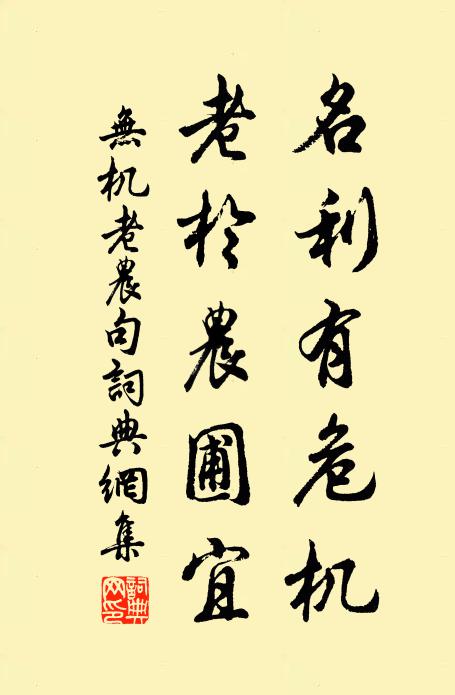 名利有危机
老於農圃宜
無机老農句詞典網集
詞典网印